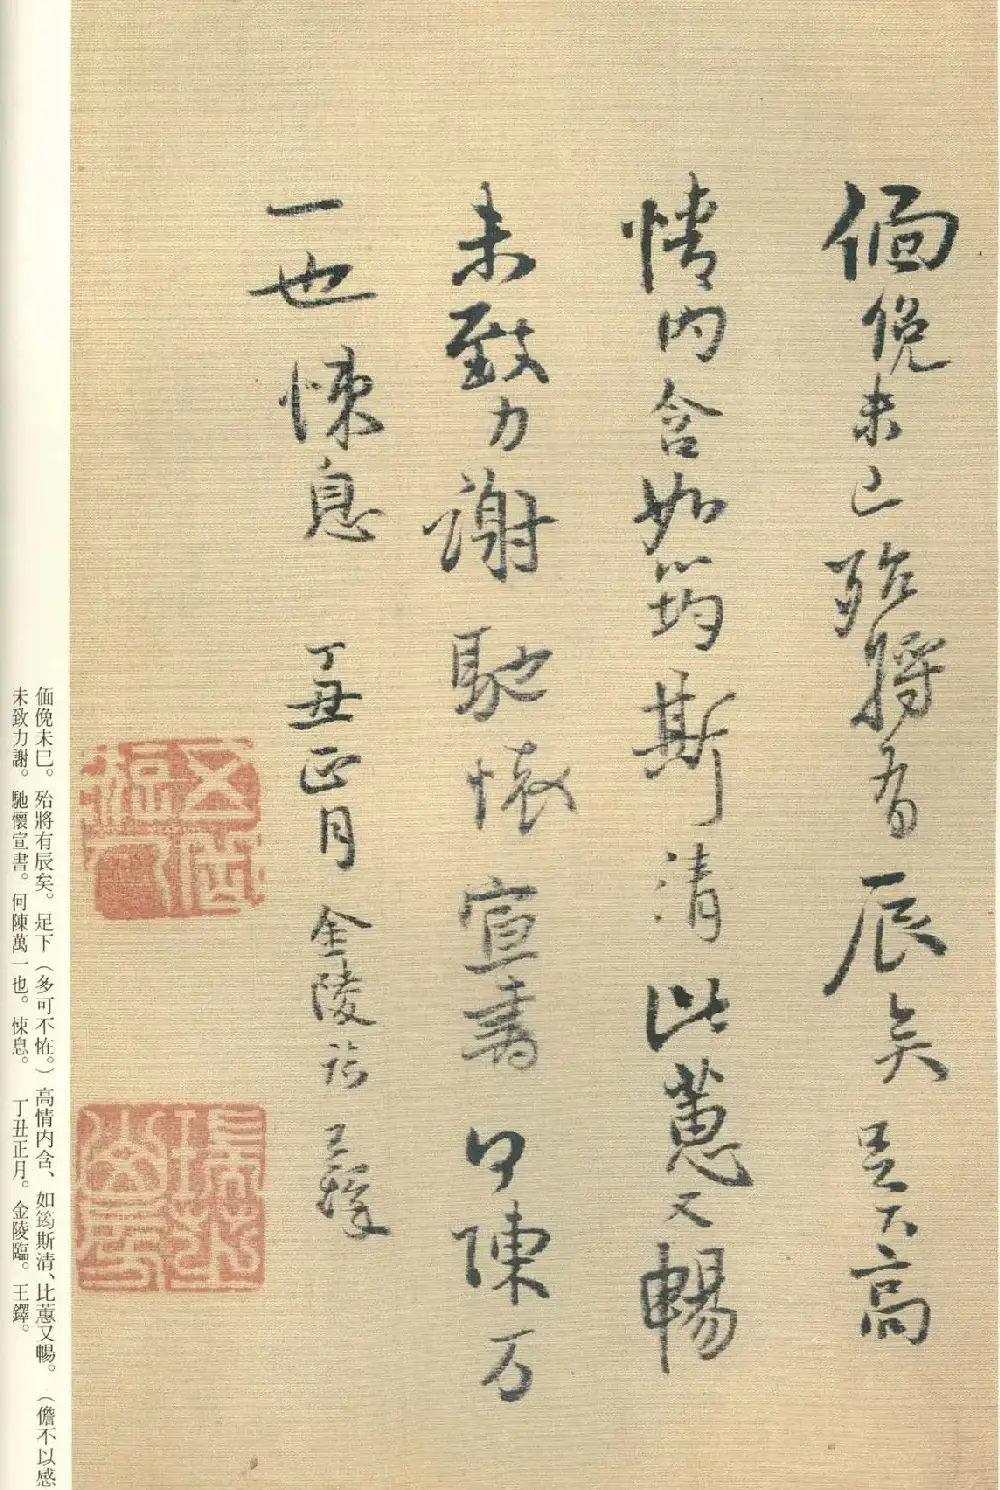 偭俛未已殆將有辰矣足下高
情内含如筠斯清比蕙又暢
未致力謝馳懷宣書何陳万
一也悚息 丁丑正月金陵臨王鐸
偭俛未巳。殆將有辰矣。足下（多可不恠。）高情内含、如筠斯清、比蕙又暢。（儋不以感
未致力謝。馳懷宣書。何陳萬一也。悚息。 丁丑正月。金陵臨。王鐸。